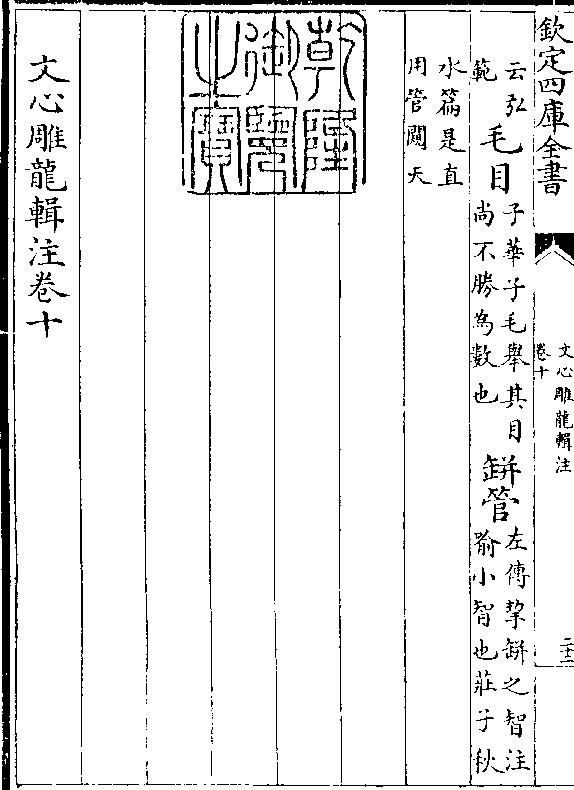 欽定四庫全書
文心雕龍輯注
卷十
二十二
云弘
範
毛目
子華子毛舉其目
尚不勝為數也
缾管
左傳挈缾之智注
喻小智也莊子秋
水篇是直
用管闚天
乾隆
御覽
之寶
文心雕龍輯注卷十